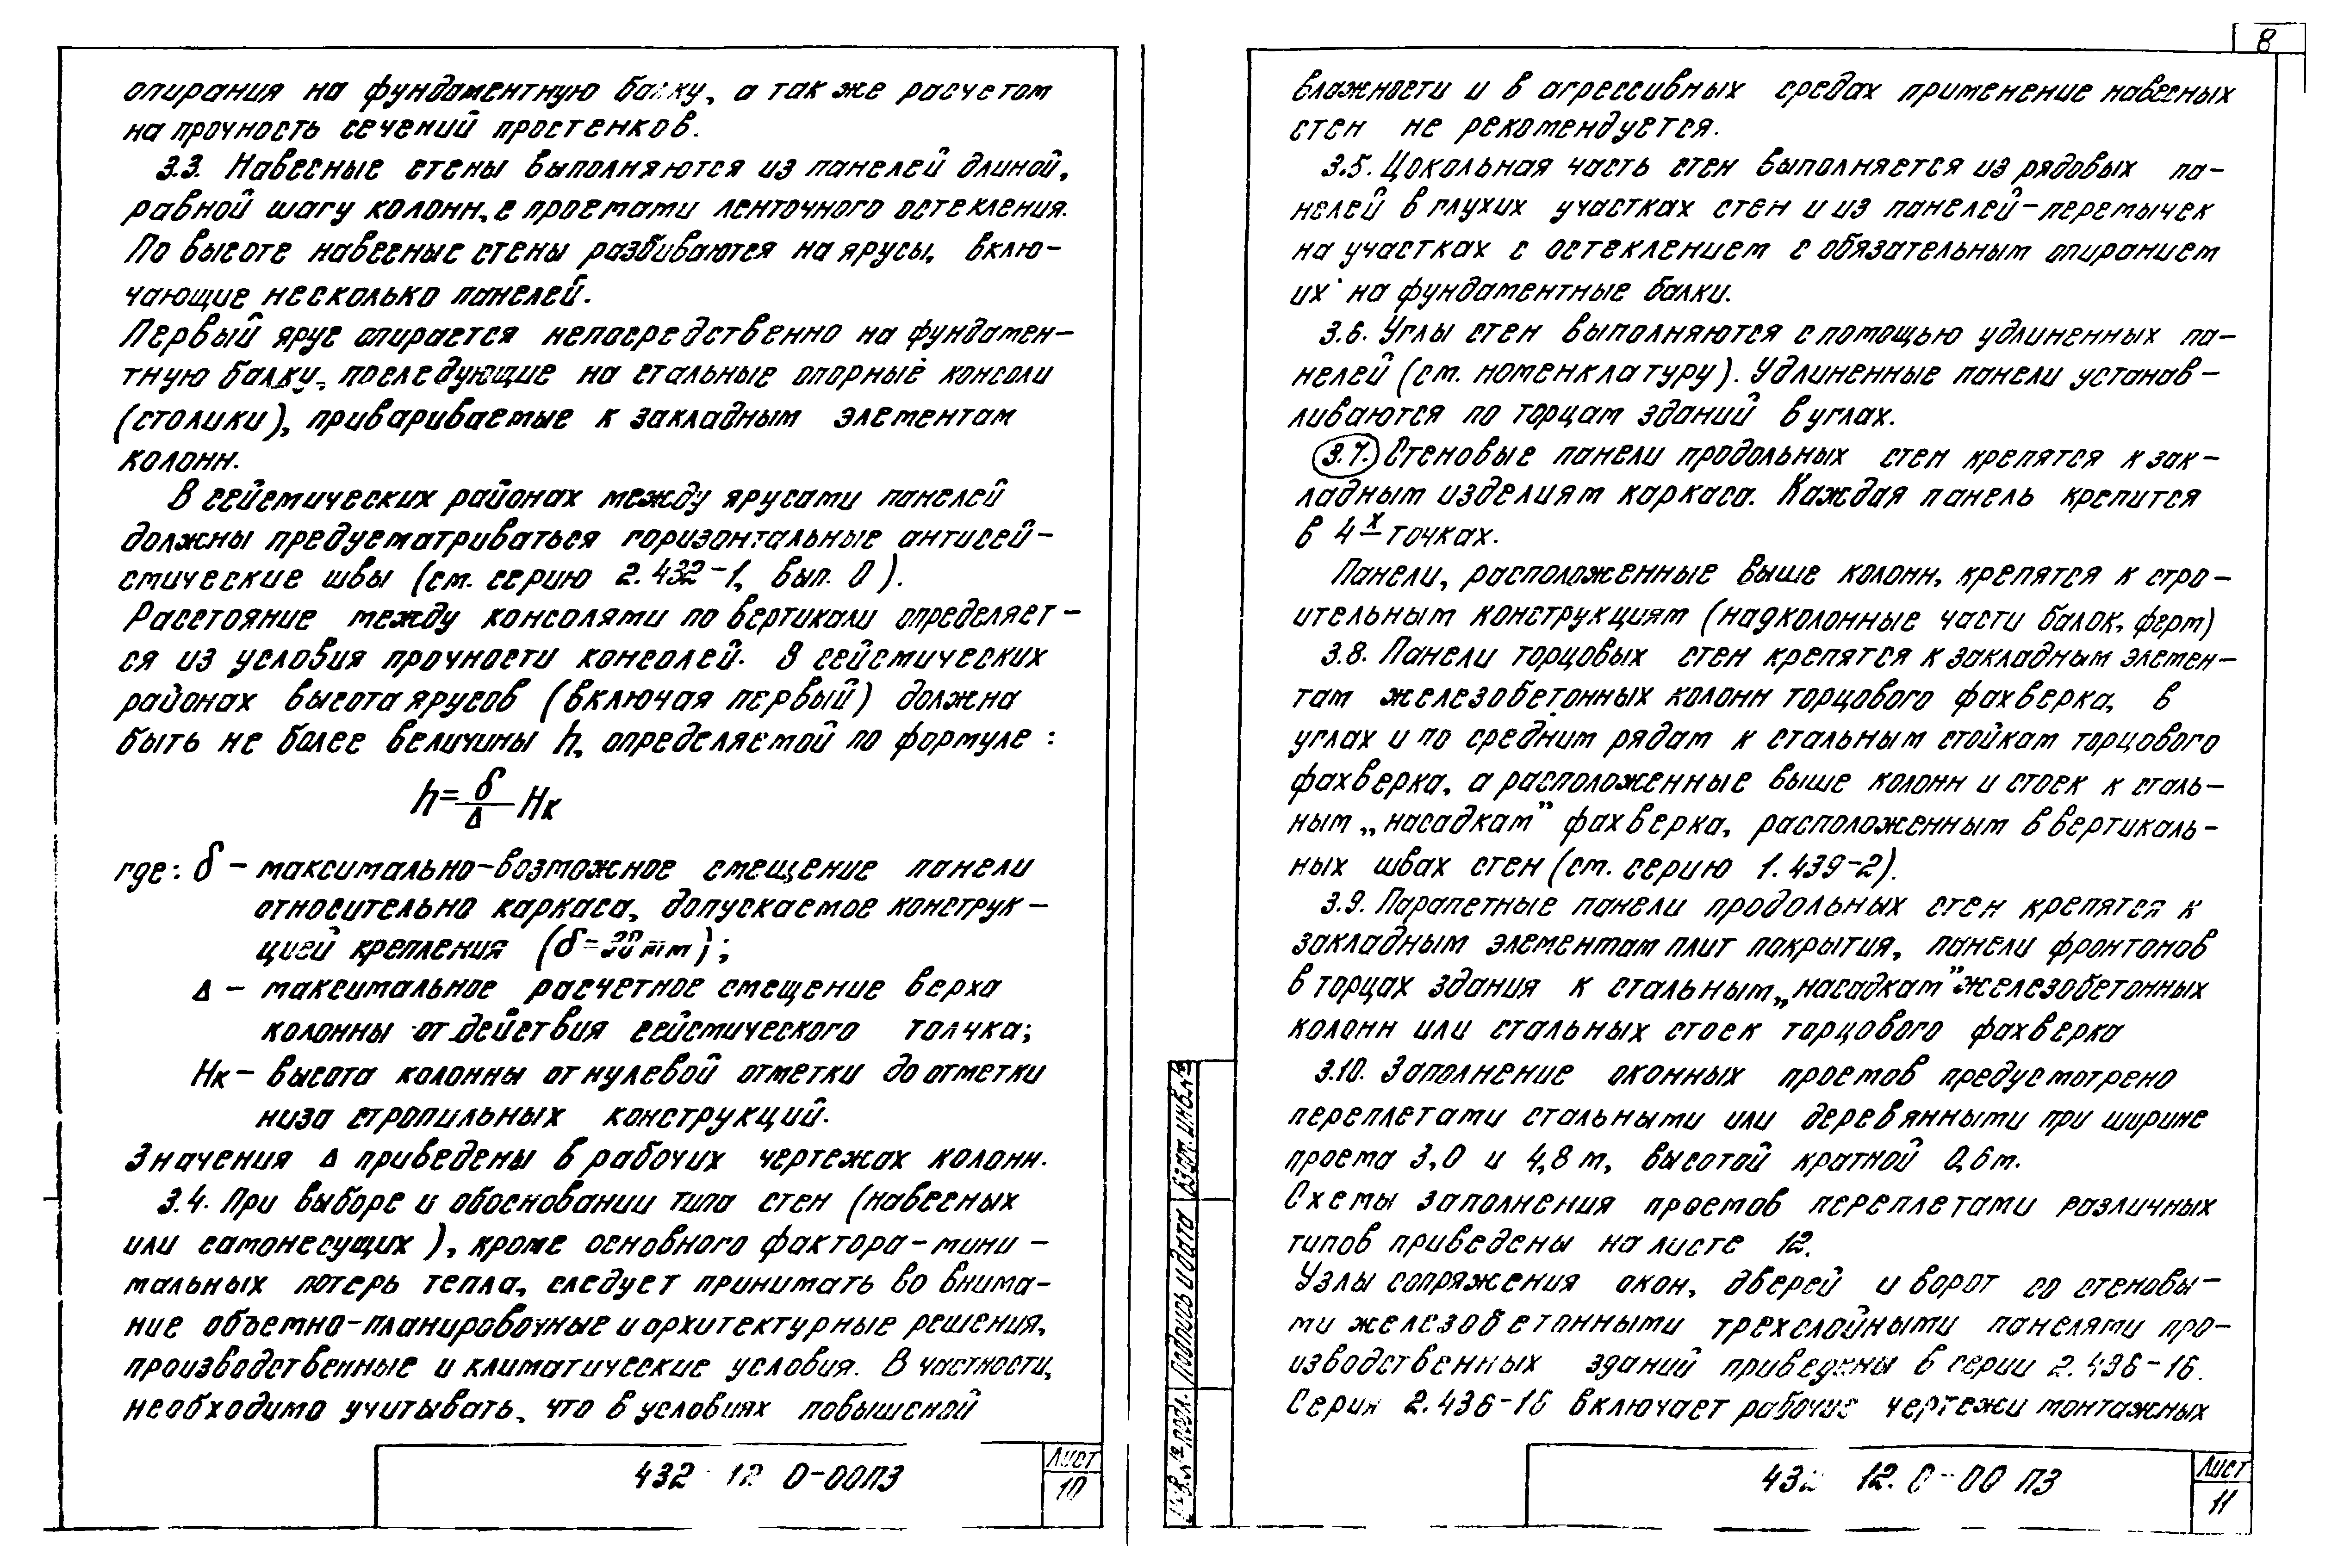 опирания на фундаментную балку, а так же расчетом
на прочность сечений простенков.
3.3. Навесные стены выполняются из панелей длиной,
равной шагу колонн, с проемами ленточного остекления.
По высоте навесные стены разбиваются на ярусы, вклю-
чающие несколько панелей.
Первый ярус опирается непосредственно на фундамен-
тную балку, последующие на стальные опорные консоли
(столики), привариваемые к закладным элементам
колонн.
В сейсмических районах между ярусами панелей
должны предусматриваться горизонтальные антисей-
смические швы (см. серию 2.432-1, вып. 0).
Расстояние между консолями по вертикали определяет-
ся из условия прочности консолей. В сейсмических
районах высота ярусов (включая первый) должна
быть не более величины h, определяемой по формуле:
h = δ/Δ Hк
где: δ - максимально-возможное смещение панели
относительно каркаса, допускаемое конструк-
цией крепления (δ= мм);
Δ - максимальное расчетное смещение верха
колонны от действия сейсмического толчка;
Hк - высота колонны от нулевой отметки до отметки
низа стропильных конструкций.
Значения Δ приведены в рабочих чертежах колонн.
3.4. При выборе и обосновании типа стен (навесных
или самонесущих), кроме основного фактора - мини-
мальных потерь тепла, следует принимать во внима-
ние объемно-планировочные и архитектурные решения,
производственные и климатические условия. В частности,
необходимо учитывать, что в условиях повышеной
432 12 0-00ПЗ
Лист
10
8
влажности и в агрессивных средах применение навесных
стен не рекомендуется.
3.5. Цокольная часть стен выполняется из рядовых па-
нелей в глухих участках стен и из панелей-перемычек
на участках с остеклением с обязательным опиранием
их на фундаментные балки.
3.6. Углы стен выполняются с помощью удлиненных па-
нелей (см. номенклатуру). Удлиненные панели устанав-
ливаются по торцам зданий в углах.
3.7. Стеновые панели продольных стен крепятся к зак-
ладным изделиям каркаса. Каждая панель крепится
в 4х точках.
Панели, расположенные выше колонн, крепятся к стро-
ительным конструкциям (надколонные части балок, ферм)
3.8. Панели торцовых стен крепятся к закладным элемен-
там железобетонных колонн торцового фахверка, в
углах и по средним рядам к стальным стойкам торцового
фахверка, а расположенные выше колонн и стоек к сталь-
ным „насадкам” фахверка, расположенным в вертикаль-
ных швах стен (см. серию 1.439-2).
3.9. Парапетные панели продольных стен крепятся к
закладным элементам плит покрытия, панели фронтонов
в торцах здания к стальным „насадкам” железобетонных
колонн или стальных стоек торцового фахверка
3.10. Заполнение оконных проемов предусмотрено
переплетами стальными или деревянными при ширине
проема 3,0 и 4,8 м, высотой кратной 0,6 м.
Схемы заполнения проемов переплетами различных
типов приведены на листе 12.
Узлы сопряжения окон, дверей и ворот со стеновы-
ми железобетонными трехслойными панелями про-
изводственных зданий приведены в серии 2.436-16.
Серия 2.436-16 включает рабочие чертежи монтажных
12. 0-00 ПЗ
Лист
11
Взам. инв. №
Подпись и дата
Инв. № подл.